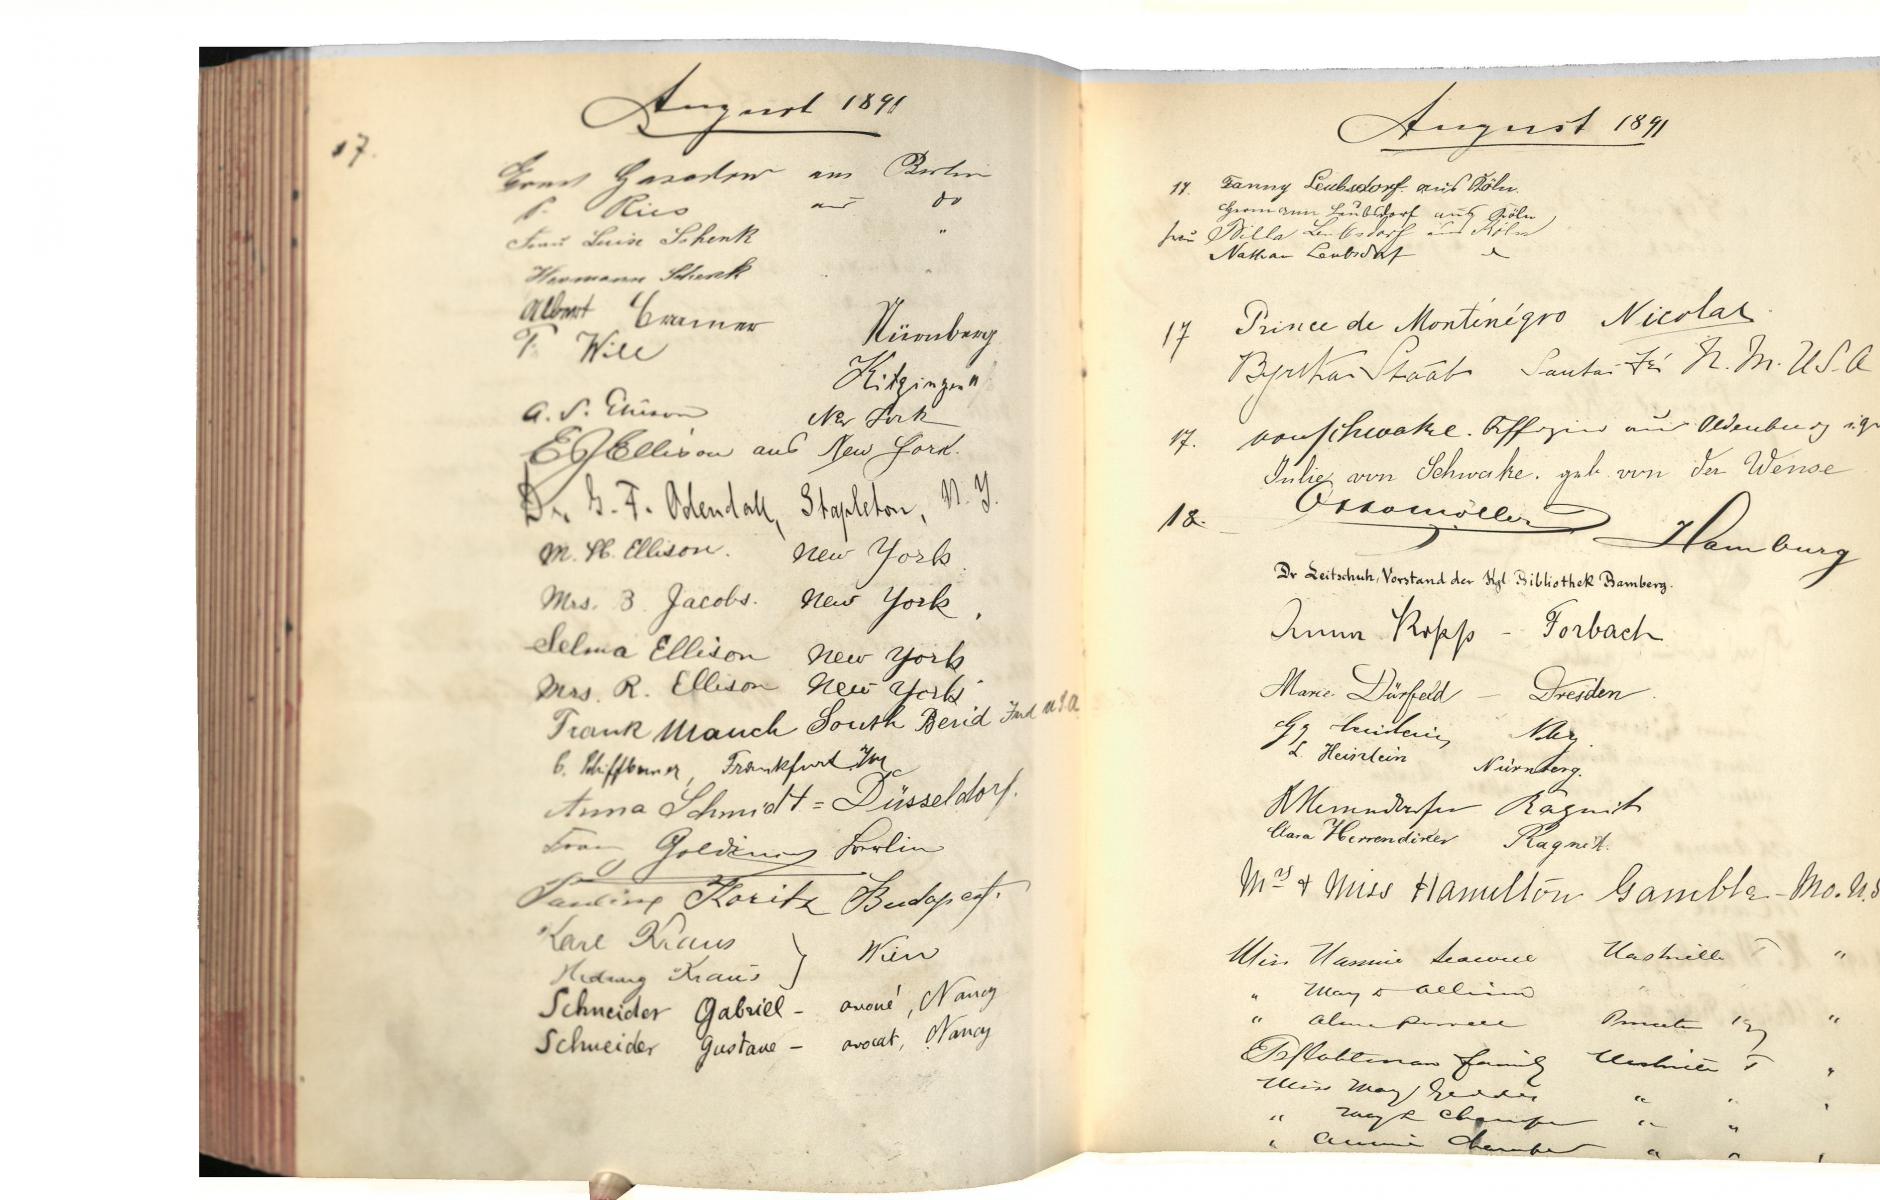 August 1891
17.
Ernst aus Berlin
P. Ries aus do
Frau Luise Schenk "
Hermann Schenk "
Albert Cramer Nürnberg
T. Will Kitzingen
A. S. Ellison New York
E J Ellison aus New York.
Dr. G. F. Odendall, Stapleton, N. Y.
M. H. Ellison. New York.
Mrs. B. Jacobs. New York.
Selma Ellison New York
Mrs. R. Ellison New York
Frank Mauch South Bend Ind U.S.A
C. Frankfurt
Anna Schmidt = Düsseldorf.
Berlin
Pauline Koritz Budapest.
Karl Kraus
Hedwig Kraus } Wien
Schneider Gabriel - avoué, Nancy
Schneider Gustave - avocat, Nancy
August 1891
17. Fanny Leubsdorf aus Köln.
Hermann Leubsdorf aus Köln
Frau Billa Leubsdorf aus Köln
Nathan Leubsdorf "
17 Prince de Monténégro Nicolas
Staab Santa Fé N. M. U S. A
17. von Schwake. aus Oldenburg
Julie von Schwake. geb. von der Wense
18. Hamburg
Dr Leitschuh, Vorstand der Kgl. Bibliothek Bamberg.
Anna Kopp - Forbach
Marie Dürfeld - Dresden.
Gg Nbg.
L Heinlein Nürnberg.
Ragnit
Clara Ragnit.
Mrs & Miss Hamilton Gamble - Mo. U.S
Miss Nashville T "
" May Allison " "
" "
family Nashville T "
Miss May " " "
" " "
" Annie " " "